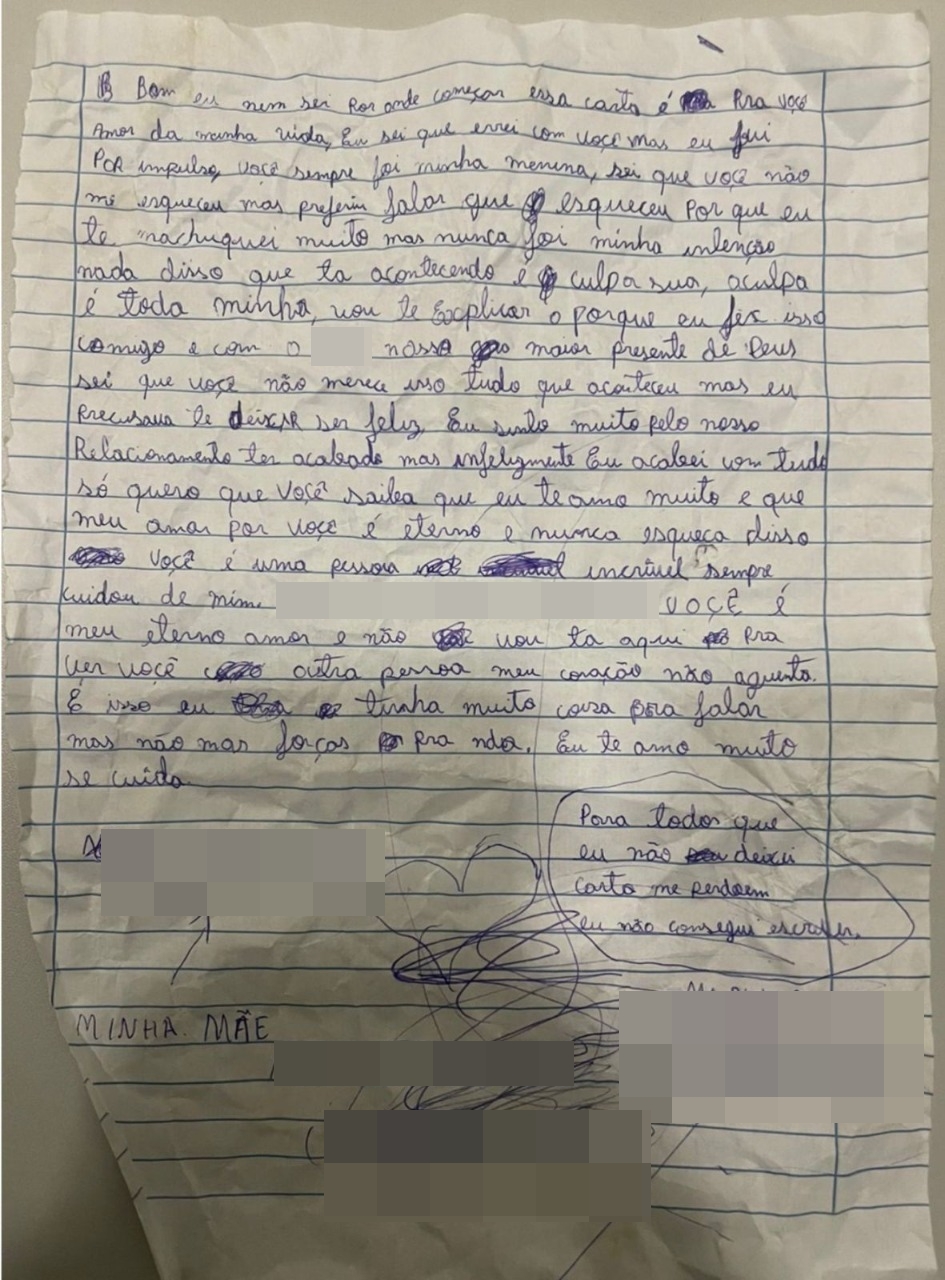 Bom eu nem sei por onde começar essa carta é pra você
Amor da minha vida, Eu sei que errei com você mas eu fui
POR impulso, você sempre foi minha menina, sei que você não
me esqueceu mas preferiu falar que esqueceu Por que eu
te machuquei muito mas nunca foi minha intenção
nada disso que ta acontecendo é culpa sua, aculpa
é toda minha, vou te Explicar o porque eu fiz isso
comigo e com o nosso maior presente de Deus
sei que você não merece isso tudo que aconteceu mas eu
Precisava te deixar ser feliz, Eu sinto muito pelo nosso
Relacionamento ter acabado mas infelizmente Eu acabei com tudo
só quero que você saiba que eu te amo muito e que
meu amor por você é eterno e nunca esqueça disso
você é uma pessoa incrível sempre
cuidou de mim. VOÇÊ É
meu eterno amor e não vou ta aqui pra
ver você outra pessoa meu coração não aguenta.
É isso eu tinha muito coisa pra falar
mas não mas forças Pra nda. Eu te amo muito
se cuida.
Para todos que
eu não deixei
carta me perdoem
eu não consegui escrever.
MINHA MÃE